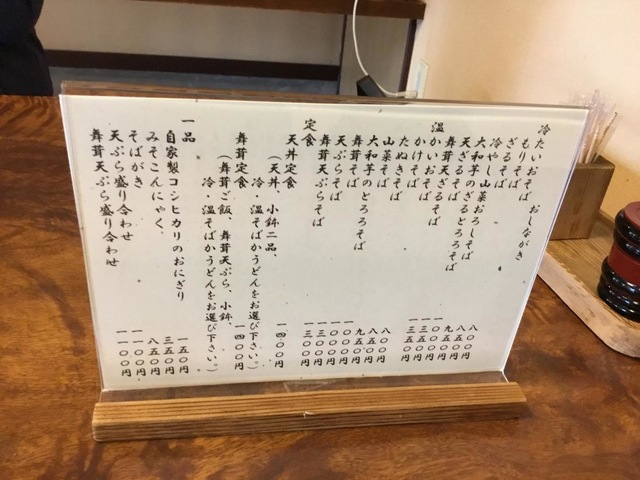 冷たいおそば おしながき
もりそば 八〇〇円
ざるそば 八五〇円
冷やし山菜おろしそば 九五〇円
大和芋のざるとろろそば
天ざるそば
舞茸天ざるそば
温かいおそば
かけそば 八〇〇円
たぬきそば 八五〇円
山菜そば 九五〇円
大和芋のとろろそば
舞茸そば
天ぷらそば 一三〇〇円
舞茸天ぷらそば 一三〇〇円
定食
天丼定食 一四〇〇円
(天丼、小鉢二品、
冷・温そばかうどんをお選び下さい。)
舞茸定食 一四〇〇円
(舞茸ご飯、舞茸天ぷら、小鉢、
冷・温そばかうどんをお選び下さい。)
一品
自家製コシヒカリのおにぎり 一五〇円
みそこんにゃく 三五〇円
そばがき 八五〇円
天ぷら盛り合わせ 一一〇〇円
舞茸天ぷら盛り合わせ 一一〇〇円